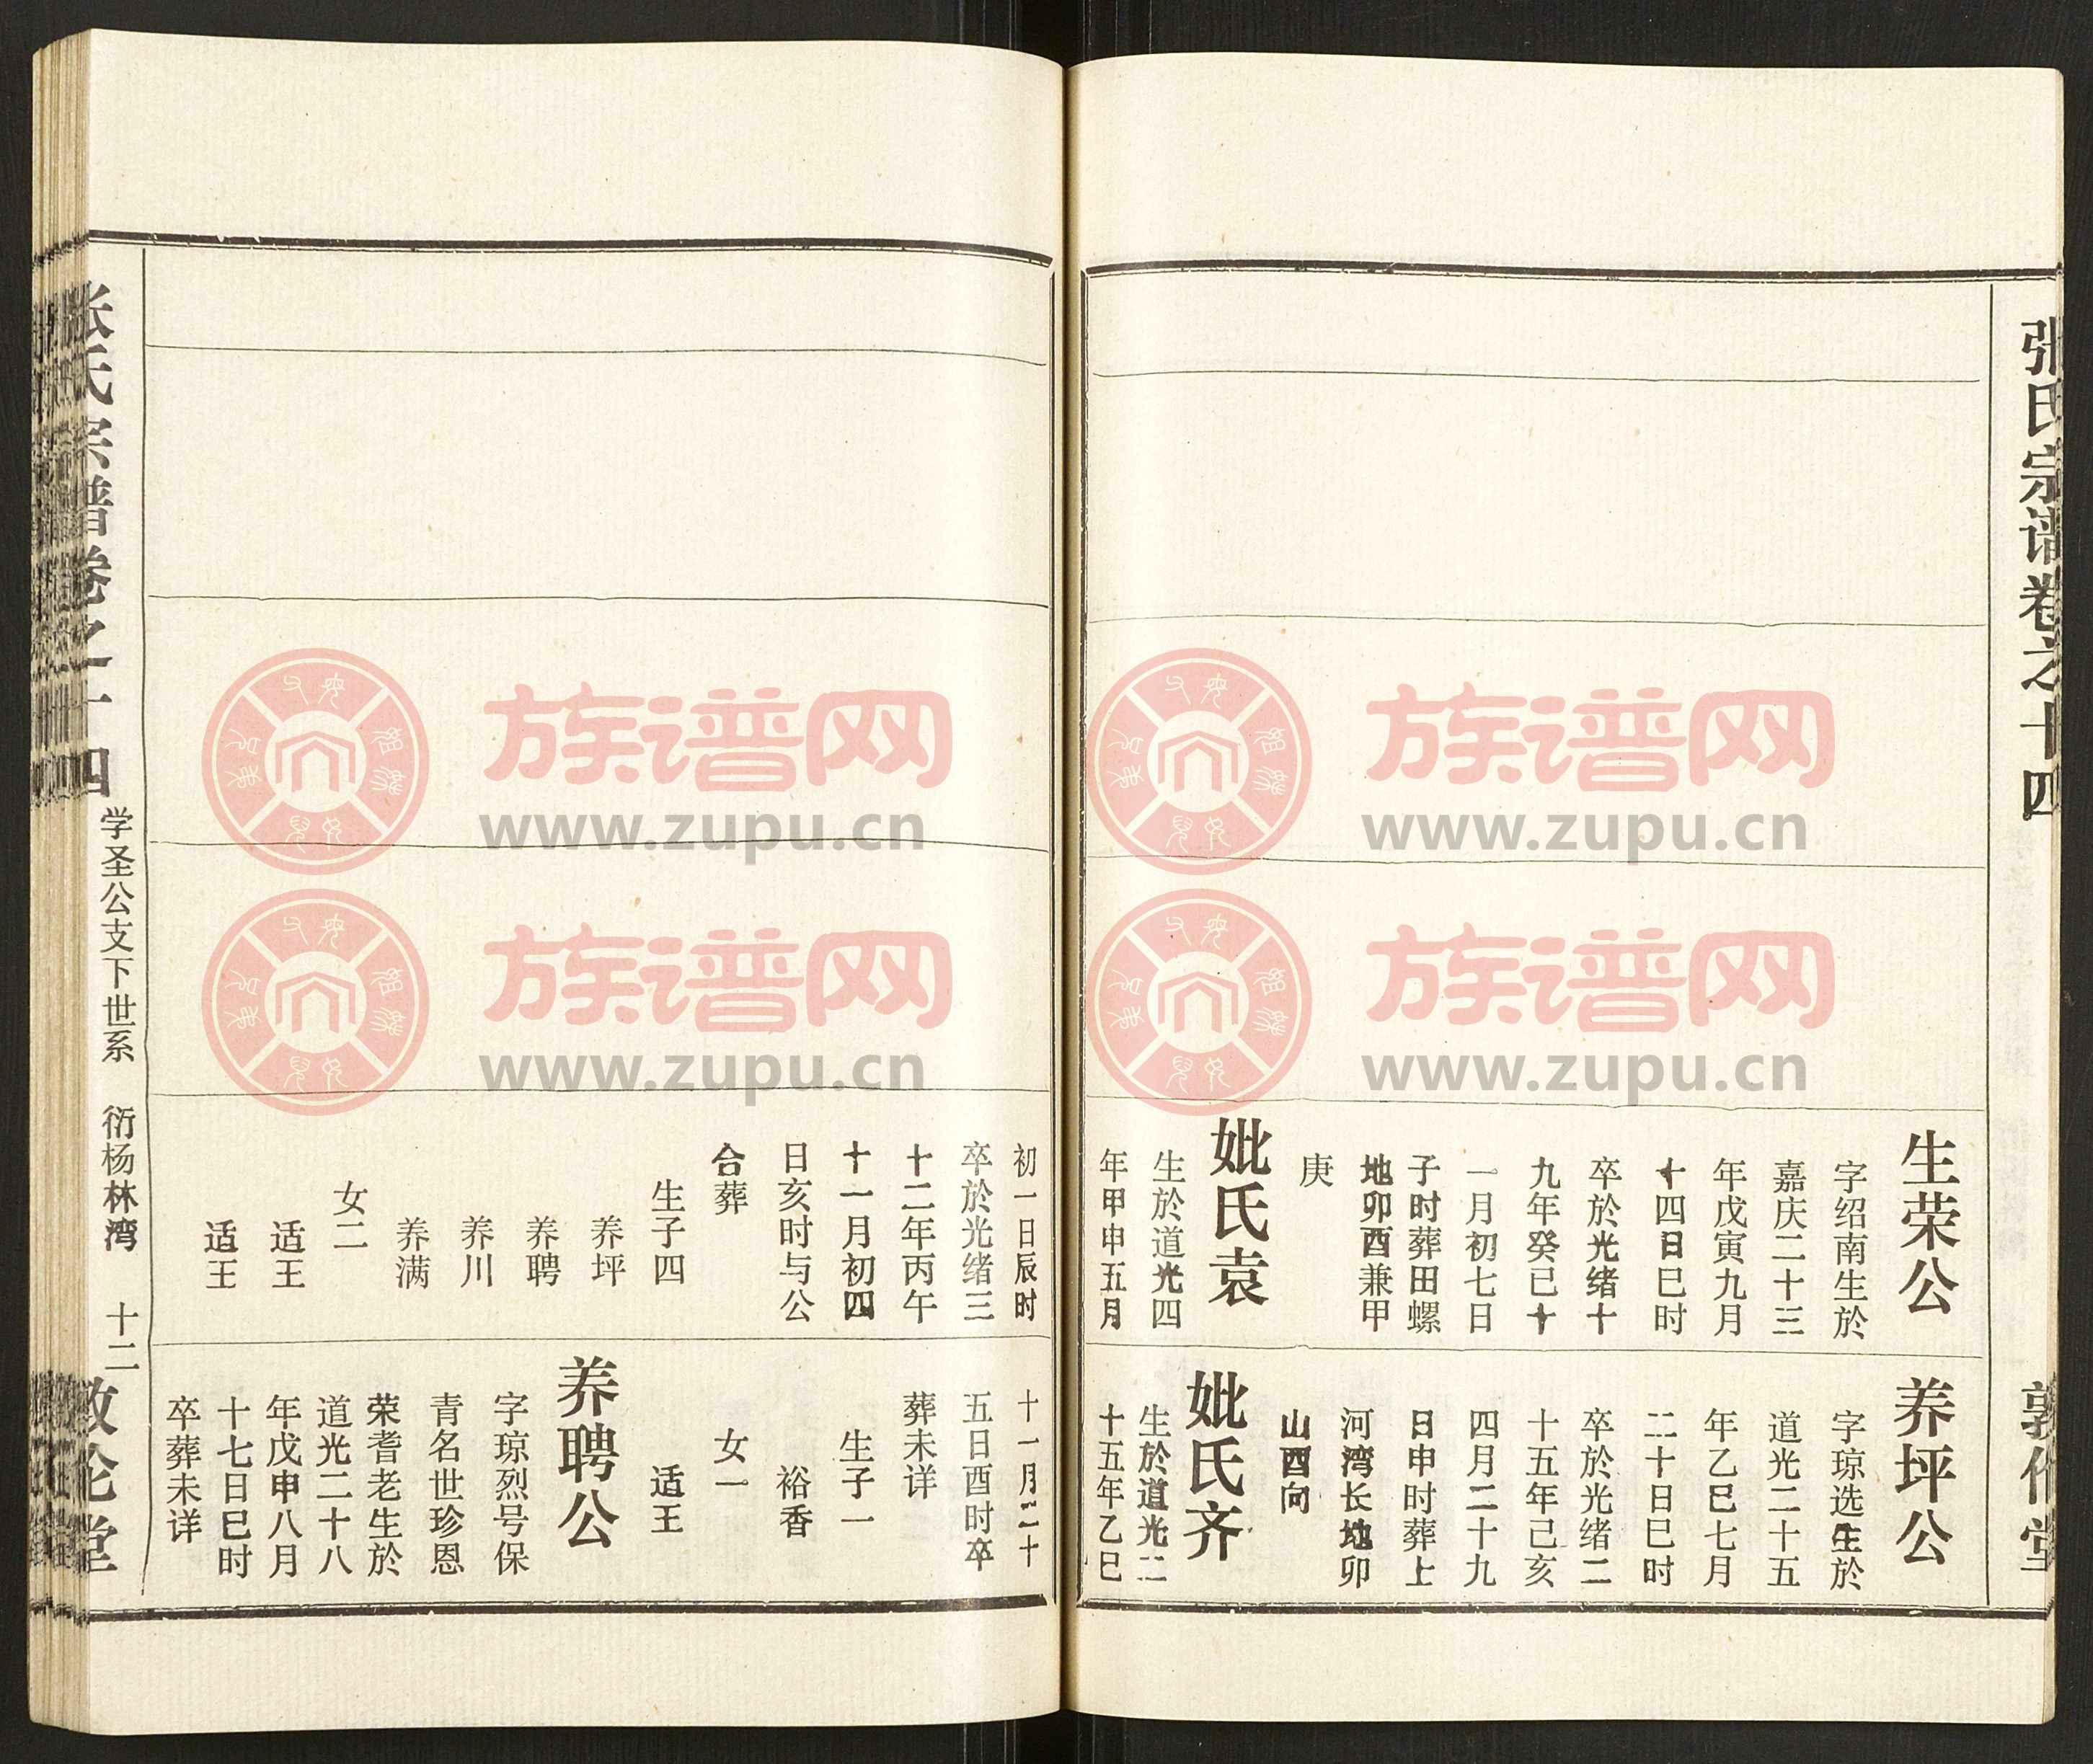 张氏宗谱卷之十四
敦伦堂
生荣公
字绍南生於
嘉庆二十三
年戊寅九月
十四日巳时
卒於光绪十
九年癸巳十
一月初七日
子时葬田螺
地卯酉兼甲
庚
妣氏袁
生於道光四
年甲申五月
养坪公
字琼选生於
道光二十五
年乙巳七月
二十日巳时
卒於光绪二
十五年己亥
四月二十九
日申时葬上
河湾长地卯
山酉向
妣氏齐
生於道光二
十五年乙巳
初一日辰时
卒於光绪三
十二年丙午
十一月初四
日亥时与公
合葬
生子四
养坪
养聘
养川
养满
女二
适王
适王
十一月二十
五日酉时卒
葬未详
生子一
裕香
女一
适王
养聘公
字琼烈号保
青名世珍恩
荣耆老生於
道光二十八
年戊申八月
十七日巳时
卒葬未详
张氏宗谱卷之十四
学圣公支下世系 衍杨林湾 十二
敦伦堂
族谱网
www.zupu.cn
族谱网
www.zupu.cn
族谱网
www.zupu.cn
族谱网
www.zupu.cn